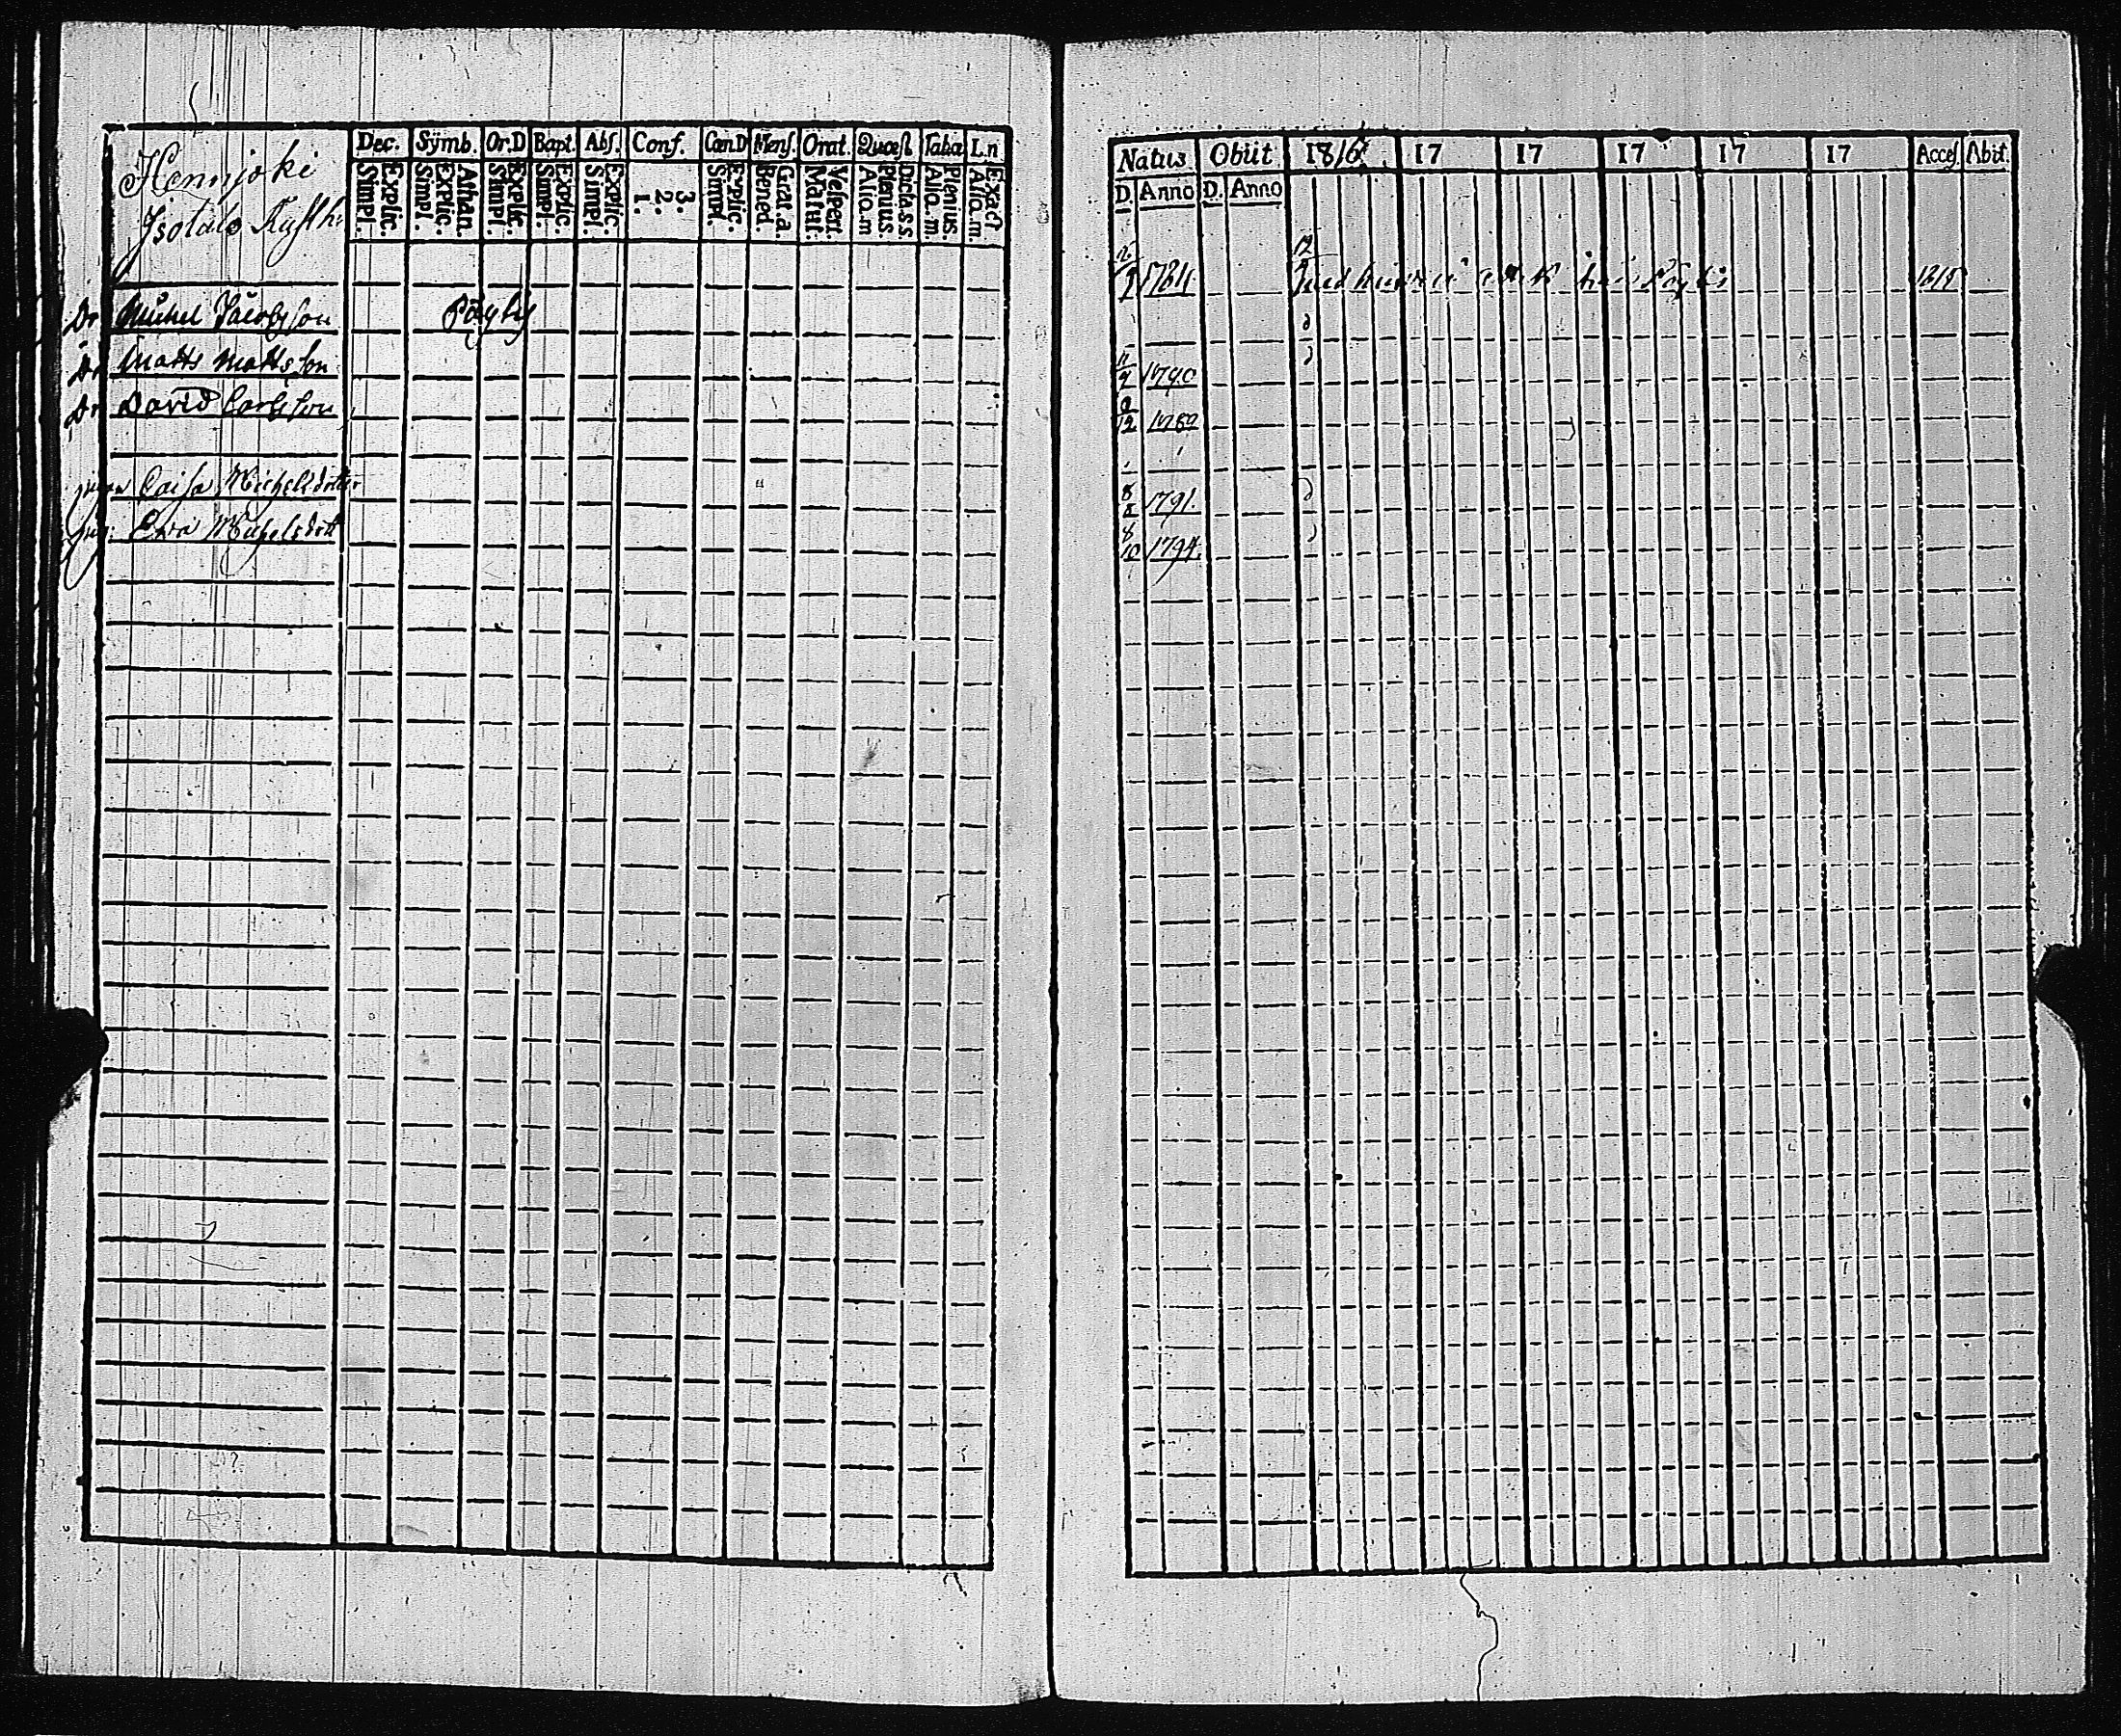 Hennijoki
Isotalo Rusth
Dec. Symb. Or.D Bapt. Abs. Conf. Cœn.D Mens. Orat. Quæst Taba L.n
Simpl. Explic. Simpl. Explic. Athan. Simpl. Explic. Simpl. Explic. Simpl. Explic. 1. 2. 3. Simpl. Explic. Bened. Grat. a. Matut. Vespert. Alio. m Plenius Dicta. s.s Alio. m. Plenius. Alio. m. Exact
Dr Michel Jacobsson Påyby
Dr Matts Mattsson
Dr David Carlsson
pigan Caisa Michelsdotter
pig: Eva Michelsdott
Natus Obiit 1816 17 17 17 17 17 Acces. Abit.
D. Anno D. Anno
2 1784
11/7 1790
9/12 1789
8/8 1791.
8/10 1794.